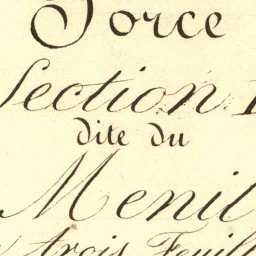 Force
Section
dite du
Menil
trois Feuill